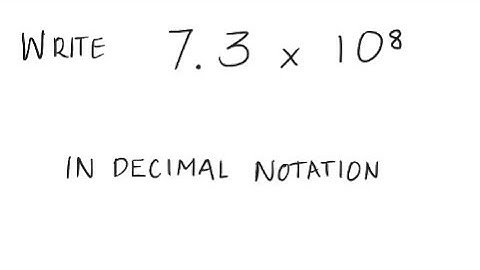 WRITE 7.3 x 10⁸
IN DECIMAL NOTATION